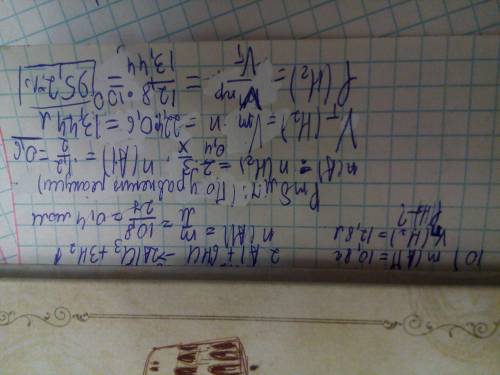 10) m(Al)=10,8г
V(H₂)=12,8л
2Al+6HCl→2AlCl₃+3H₂↑
n(Al)=m/M=10,8/27=0,4 моль
(По уравнению реакции)
n(Al):n(H₂)=2:3
0,4 x
=0,6
V_T(H₂)=Vm·n=22,4·0,6=13,44 л
f(H₂)=Vпр/V_T=12,8·100/13,44=95,2%